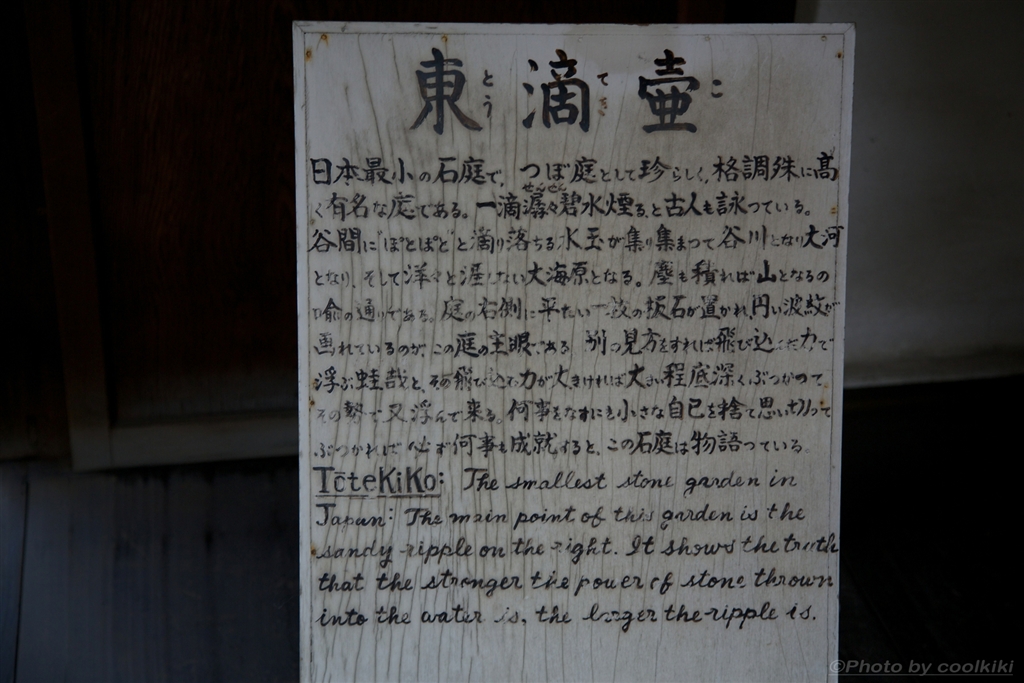 東滴壺
とう てき こ
日本最小の石庭で、つぼ庭として珍らしく、格調殊に高
く有名な庭である。一滴潺々碧水煙る、と古人も詠つている。
せんせん
谷間に"ぽとぽと"と滴り落ちる水玉が集り集まつて谷川となり大河
となり、そして洋々と涯しない大海原となる。塵も積れば山となるの
喩の通りである。庭の右側に平たい一枚の板石が置かれ、円い波紋が
画れているのが、この庭の主眼である 別の見方をすれば飛び込んだ力で
浮ぶ蛙哉と、その飛び込む力が大きければ大きい程底深くぶつかつて
その勢で又浮んで来る。何事をなすにも小さな自己を捨て思い切って
ぶつかれば必ず何事も成就すると、この石庭は物語つている。
TōteKiKo: The smallest stone garden in
Japan: The main point of this garden is the
sandy ripple on the right. It shows the truth
that the stronger the power of stone thrown
into the water is, the larger the ripple is.
©Photo by coolkiki